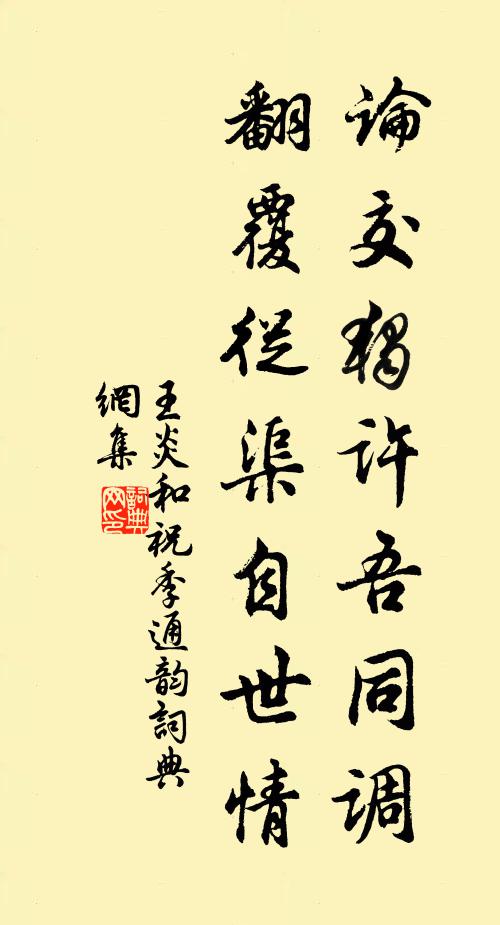 論交獨許吾同調
翻覆從渠自世情
王炎和祝季通韵詞典
網集
詞典
网印